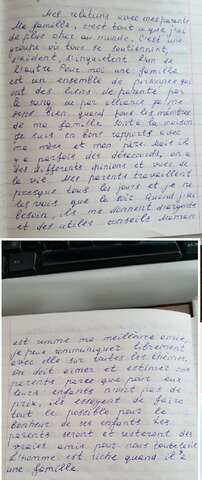 Mes relations avec mes parents
Ma famille, c'est tout ce que j'ai
de plus cher au monde. C'est une
groupe où tous se soutiennent,
s'aident, s'inquiètent l'un de
l'autre. Pour moi une famille
est un ensemble de personnes qui
ont des liens de parenté par
le sang ou par alliance. Je me
sens bien quand tous les membres
de ma famille sont à la maison.
Je suis en bons rapports avec
ma mère et mon père mais il
y a parfois des désaccords, on a
des différents opinions et vues de
la vie. Mes parents travaillent
presque tous les jours et je ne
les vois que le soir. Quand j'ai
besoin, ils me donnent
et des utiles conseils. Maman
est comme ma meilleure amie,
je peux communiquer librement
avec elle sur toutes les thèmes.
On doit aimer et estimer ses
parents parce que pour eux
leurs enfants n'ont pas de
prix, ils essayent de faire
tout le possible pour le
bonheur de ses enfants. Les
parents seront et resteront des
vraies amis pour nous toute la vie
L'homme est riche quand il a
une famille.